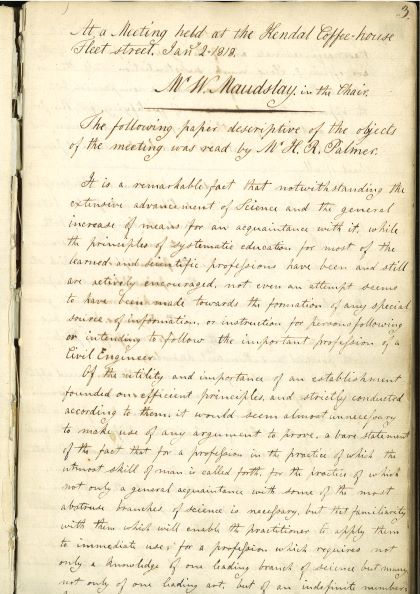 3
At a Meeting held at the Kendal Coffee-house
Fleet street, Jany 2-1818.
Mr W. Maudslay, in the Chair.
The following paper descriptive of the objects
of the meeting was read by Mr H. R. Palmer.
It is a remarkable fact that notwithstanding the
extensive advancement of Science and the general
increase of means for an acquaintance with it, while
the principles of systematic education for most of the
learned and scientific professions have been and still
are actively encouraged, not even an attempt seems
to have been made towards the formation of any special
source of information or instruction for persons following
or intending to follow the important profession of a
Civil Engineer
Of the utility and importance of an establishment
founded on efficient principles, and strictly conducted
according to them, it would seem almost unnecessary
to make use of any argument to prove, a bare statement
of the fact that for a profession in the practice of which the
utmost skill of man is called forth, for the practice of which
not only a general acquaintance with some of the most
abstruse branches of science is necessary, but that familiarity
with them which will enable the practitioner to apply them
to immediate use; for a profession which requires not
only a knowledge of one leading branch of science but many,
not only of one leading art, but of an indefinite number,